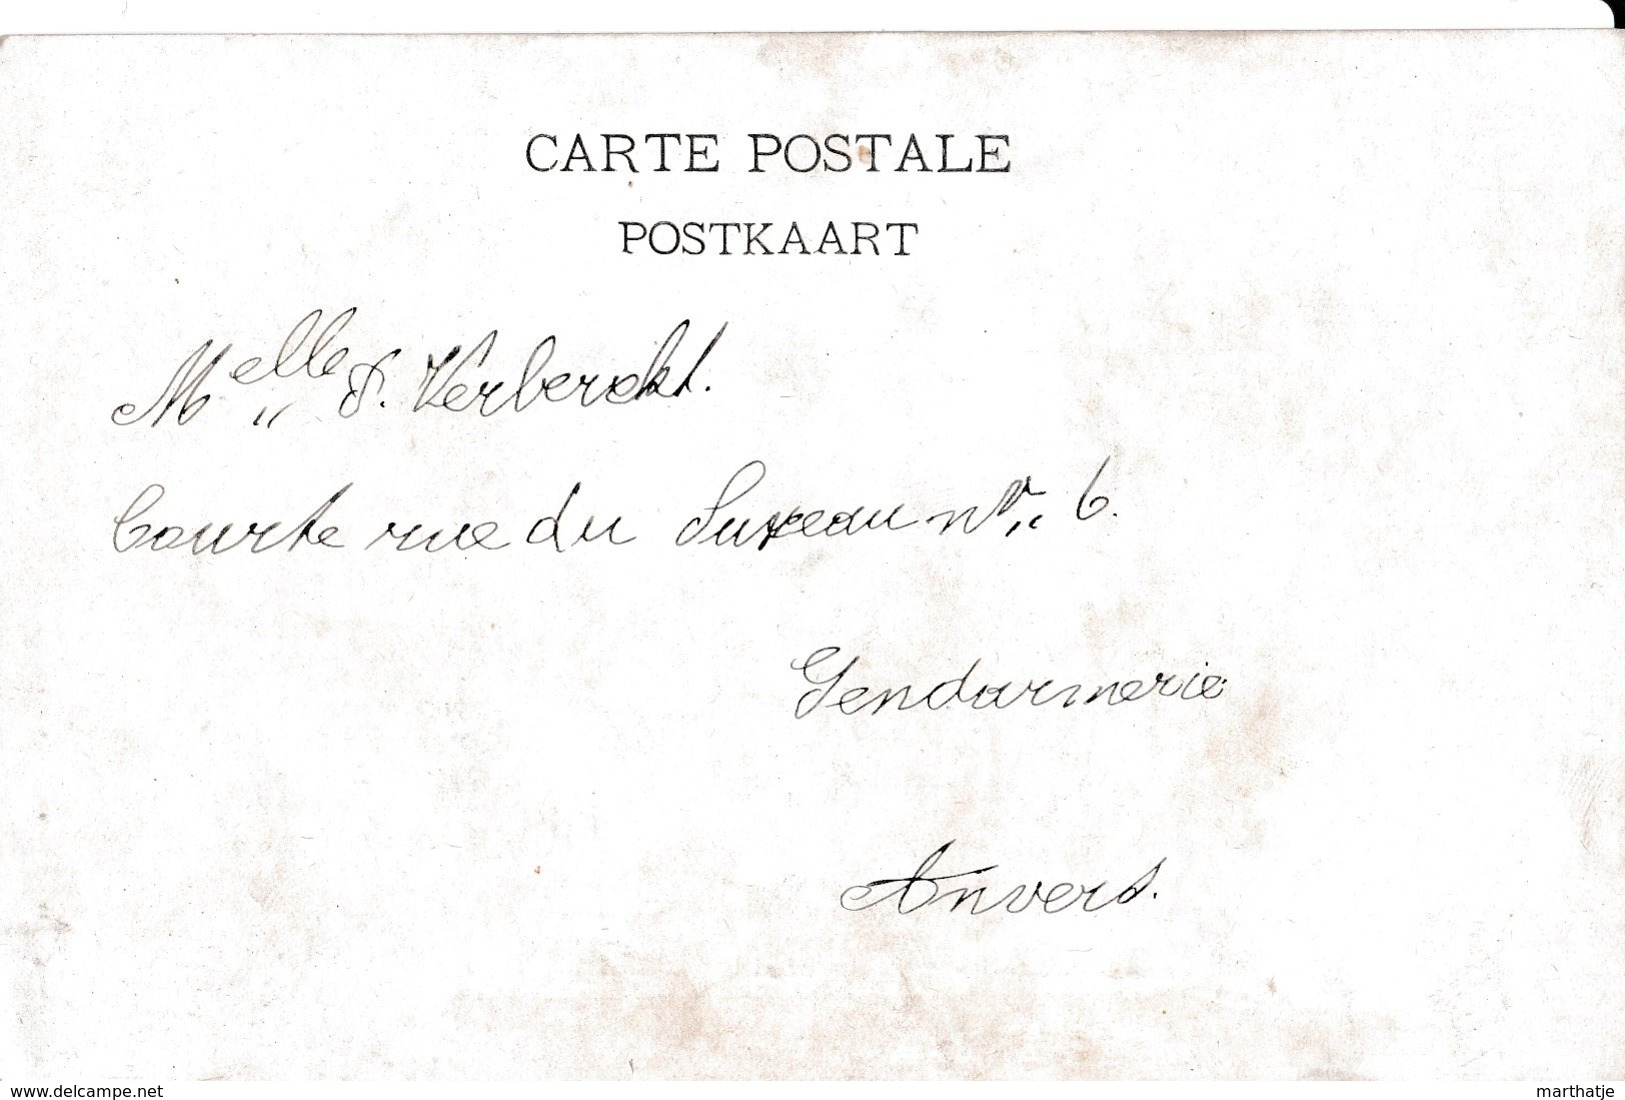 CARTE POSTALE
POSTKAART
Melle S. Verberckt.
Courte rue du Sureau nr 6.
Gendarmerie
Anvers.
www.delcampe.net
marthatje